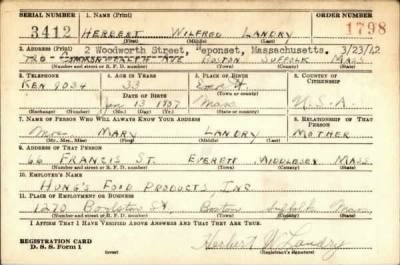 SERIAL NUMBER 1. NAME (Print) ORDER NUMBER
3412 HERBERT WILFRED LANDRY 1798
(First) (Middle) (Last)
2. ADDRESS (Print) 2 Woodworth Street, Neponset, Massachusetts. 3/23/42
COMMONWEALTH AVE BOSTON SUFFOLK MASS
(Number and street or R. F. D. number) (Town) (County) (State)
3. TELEPHONE 4. AGE IN YEARS 5. PLACE OF BIRTH 6. COUNTRY OF CITIZENSHIP
KEN 9034 33
DATE OF BIRTH
JAN 13 Mass U.S.A.
(Exchange) (Number) (Mo.) (Day) (Yr.) (State or country)
7. NAME OF PERSON WHO WILL ALWAYS KNOW YOUR ADDRESS 8. RELATIONSHIP OF THAT PERSON
Mrs. MARY LANDRY MOTHER
(Mr., Mrs., Miss) (First) (Middle) (Last)
9. ADDRESS OF THAT PERSON
66 FRANCIS ST. EVERETT MIDDLESEX MASS
(Number and street or R. F. D. number) (Town) (County) (State)
10. EMPLOYER'S NAME
FOOD PRODUCTS, INC
11. PLACE OF EMPLOYMENT OR BUSINESS
1270 Boylston St. Boston Suffolk Mass
(Number and street or R. F. D. number) (Town) (County) (State)
I AFFIRM THAT I HAVE VERIFIED ABOVE ANSWERS AND THAT THEY ARE TRUE.
REGISTRATION CARD
D. S. S. Form 1 Herbert W. Landry
(over) (Registrant's signature)